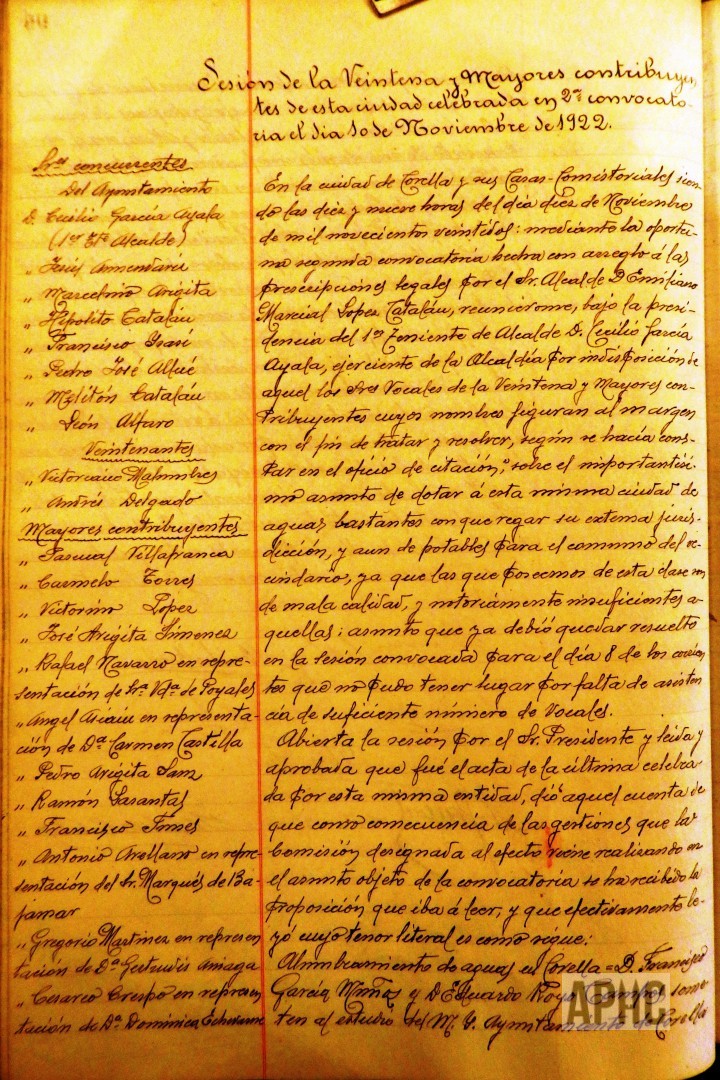 Sesión de la Veintena y Mayores contribuyen
tes de esta ciudad celebrada en 2ª convocato-
ria el dia 10 de Noviembre de 1922.
Sres concurrentes
Del Ayuntamiento
D. Cecilio García Ayala
(1er Tte Alcalde)
„ Jesús Armendariz
„ Marcelino Arigita
„ Hipolito Catalán
„ Francisco
„ Pedro José Allué
„ Melitón Catalán
„ León Alfaro
Veintenantes
„ Victoriano Malumbres
„ Andrés Delgado
Mayores contribuyentes
„ Pascual Villafranca
„ Carmelo Torres
„ Victorino López
„ José Arigita Jimenez
„ Rafael Navarro en repre-
sentación de Sra Vda de Poyales
„ Angel en representa-
ción de Dª Carmen Castilla
„ Pedro Arigita Sanz
„ Ramón
„ Francisco
„ Antonio Arellano en repre-
sentación del Sr. Marqués de Ba-
jamar
„ Gregorio Martinez en represen
tación de Dª Gertrudis
„ Cesareo Crespo en represen
tación de Dª Dominica
En la ciudad de Corella y sus Casas-Comistoriales sien-
do las diez y nueve horas del día diez de Noviembre
de mil novecientos veintidos; mediante la oportu-
na segunda convocatoria hecha con arreglo á las
prescripciones legales por el Sr. Alcalde D Emiliano
Marcial López Catalán, reunieronse, bajo la presi-
dencia del 1er Teniente de Alcalde D. Cecilio García
Ayala, ejerciente de la Alcaldía por indisposición de
aquel los Sres Vocales de la Veintena y Mayores con-
tribuyentes cuyos nombres figuran al margen
con el fin de tratar y resolver, según se hacía cons-
tar en el oficio de citación, sobre el importantísi-
mo asunto de dotar á esta misma ciudad de
aguas bastantes con que regar su extensa juris-
dicción, y aun de potables para el consumo del ve-
cindario, ya que las que poseemos de esta clase son
de mala calidad, y notoriamente insuficientes a-
quellas; asunto que ya debió quedar resuelto
en la sesión convocada para el día 8 de los corrien
tes que no pudo tener lugar por falta de asisten
cia de suficiente número de Vocales.
Abierta la sesión por el Sr. Presidente y leida y
aprobada que fué el acta de la última celebra-
da por esta misma entidad, dió aquel cuenta de
que como consecuencia de las gestiones que la
Comisión designada al efecto viene realizando en
el asunto objeto de la convocatoria se ha recibido la
proposición que iba á leer, y que efectivamente le-
yó cuyo tenor literal es como sigue:
Alumbramiento de aguas en Corella = D. Francisco
García Muñoz y D Eduardo Royo Campos some
ten al estudio del M. Y. Ayuntamiento de Corella
APHC